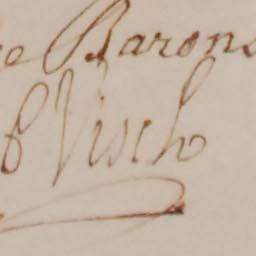 e Barons
Visch